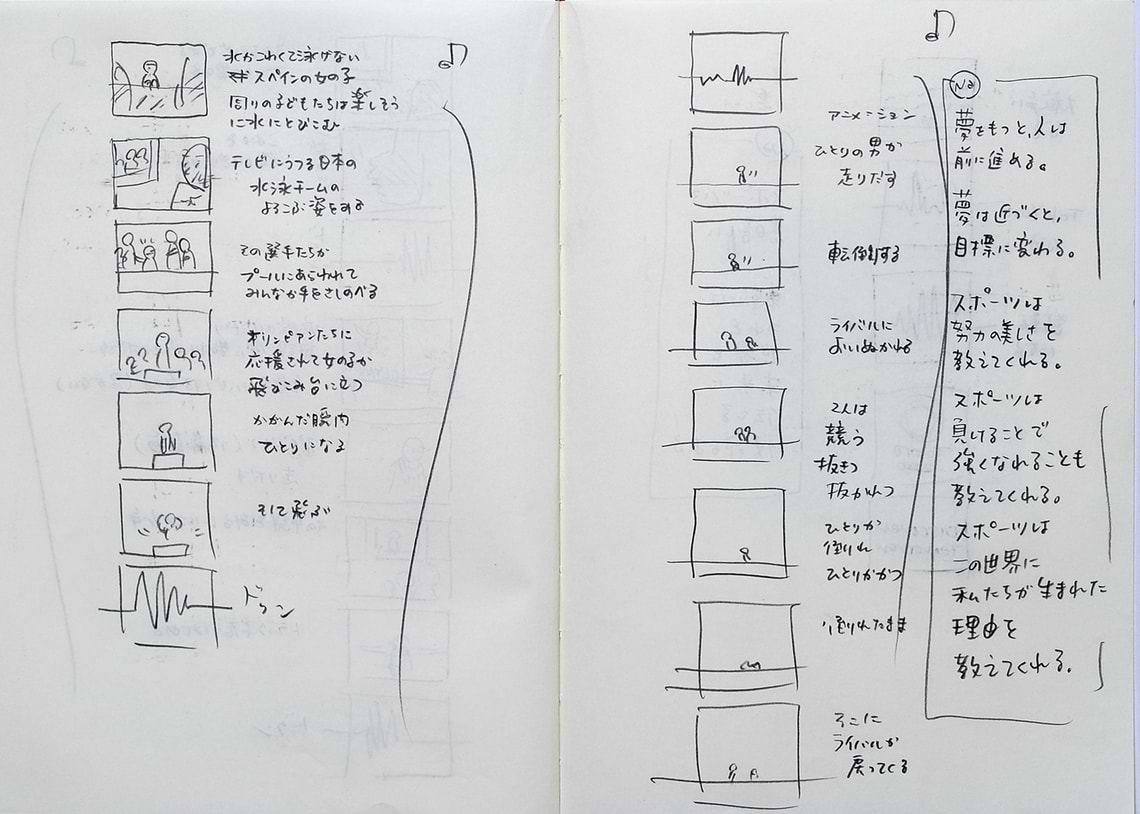 水がこわくて泳げない
スペインの女の子
周りの子どもたちは楽しそう
に水にとびこむ
テレビにうつる日本の
水泳チームの
よろこぶ姿をみる
その選手たちが
プールにあらわれて
みんなが手をさしのべる
オリンピアンたちに
応援されて女の子が
飛びこみ台に立つ
かがんだ瞬間
ひとりになる
そして飛ぶ
ドゥン
アニメーション
ひとりの男が
走りだす
転倒する
ライバルに
おいぬかれる
2人は
競う
抜きつ
抜かれつ
ひとりが
倒れ
ひとりがかつ
倒れたまま
そこに
ライバルが
戻ってくる
Na
夢をもつと、人は
前に進める。
夢は近づくと、
目標に変わる。
スポーツは
努力の美しさを
教えてくれる。
スポーツは
負けることで
強くなれることも
教えてくれる。
スポーツは
この世界に
私たちが生まれた
理由を
教えてくれる。